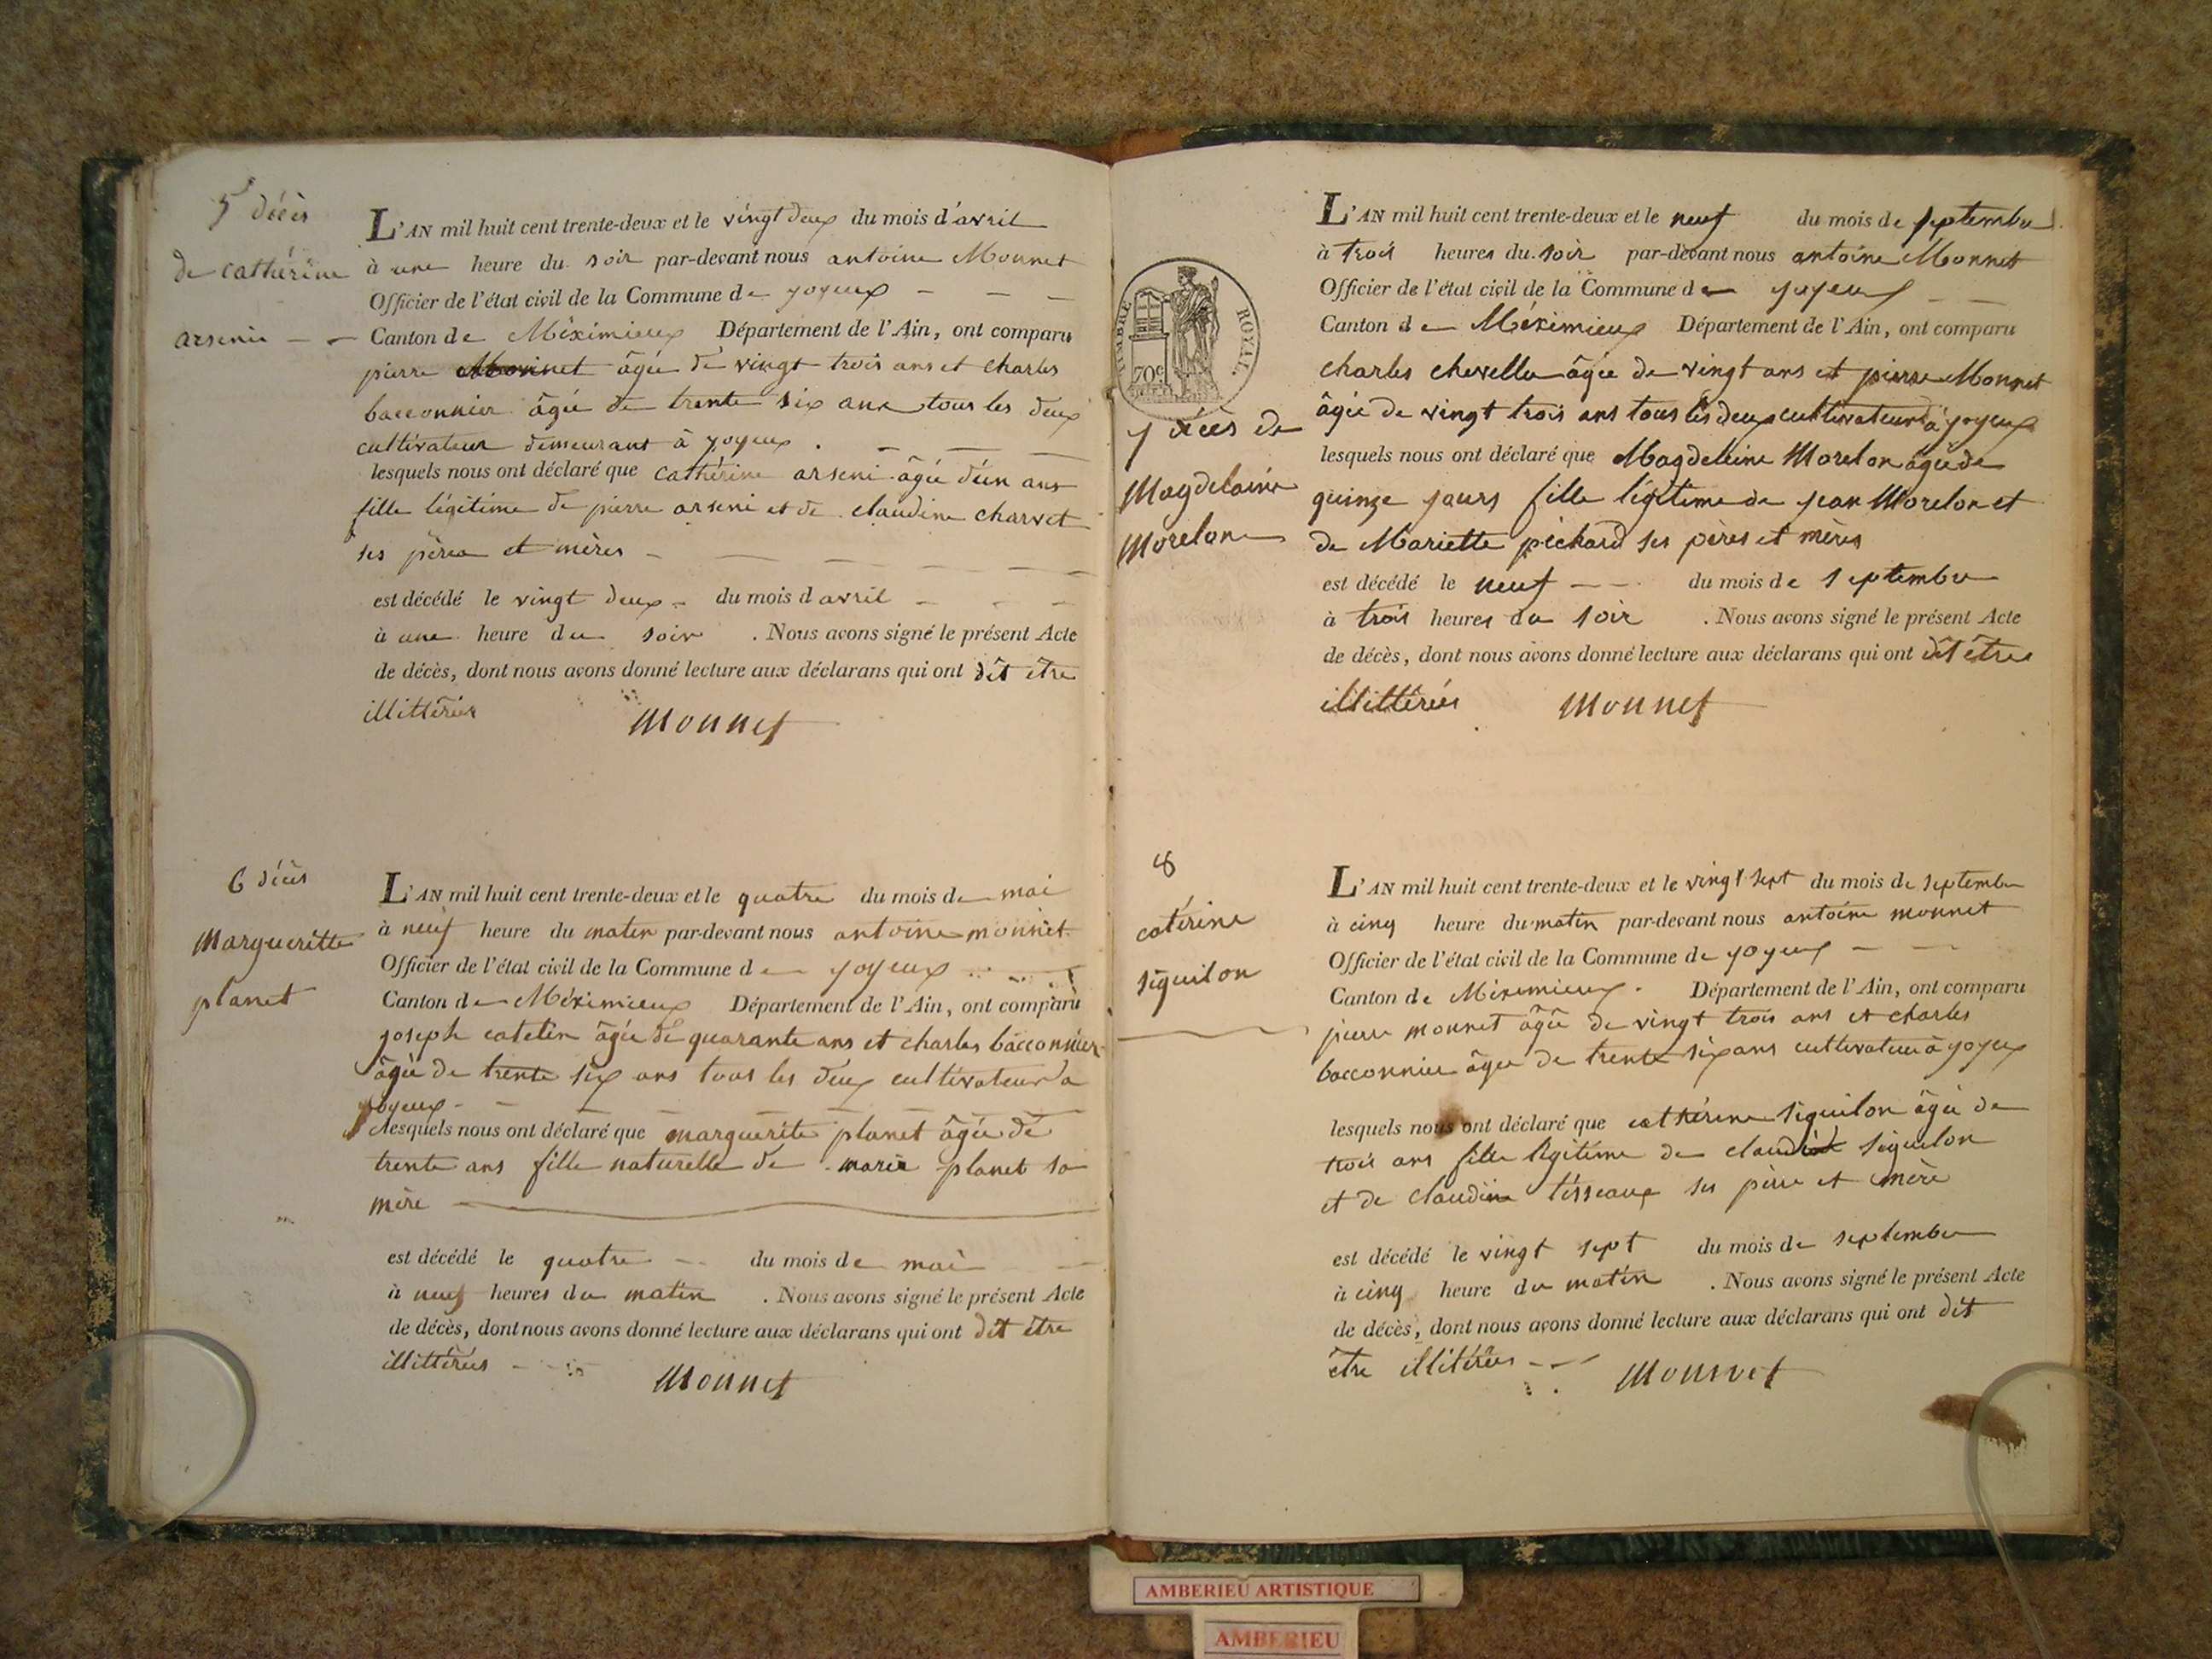 5 décès
de cathérine
arsenie
L'AN mil huit cent trente-deux et le vingt deux du mois d'avril
à une heure du soir par-devant nous antoine Monnet
Officier de l'état civil de la Commune de joyeux
Canton de Méximieux Département de l'Ain, ont comparu
pierre Monnet âgée de vingt trois ans et charles
bacconnier âgée de trente six ans tous les deux
cultivateur demeurant à joyeux.
lesquels nous ont déclaré que cathérine arseni âgée d'un ans
fille légitime de pierre arseni et de claudine charvet
ses pères et mères
est décédé le vingt deux du mois d avril
à une heure du soir . Nous avons signé le présent Acte
de décès, dont nous avons donné lecture aux déclarans qui ont dit être
illittérées
Monnet
6 décès
Margueritte
planet
L'AN mil huit cent trente-deux et le quatre du mois de mai
à neuf heure du matin par-devant nous antoine monnet
Officier de l'état civil de la Commune de joyeux
Canton de Méximieux Département de l'Ain, ont comparu
joseph catelin âgée de quarante ans et charles bacconnier
âgée de trente six ans tous les deux cultivateur a
joyeux
lesquels nous ont déclaré que marguerite planet âgée de
trente ans fille naturelle de marie planet sa
mère
est décédé le quatre du mois de mai
à neuf heures du matin . Nous avons signé le présent Acte
de décès, dont nous avons donné lecture aux déclarans qui ont dit être
illittérées
Monnet
TIMBRE ROYAL.
70c
7 décès de
Magdelaine
Morelon
L'AN mil huit cent trente-deux et le neuf du mois de septembre
à trois heures du soir par-devant nous antoine Monnet
Officier de l'état civil de la Commune de joyeux
Canton de Méximieux Département de l'Ain, ont comparu
charles chevellu âgée de vingt ans et pierre Monnet
âgée de vingt trois ans tous les deux cultivateur à joyeux
lesquels nous ont déclaré que Magdeleine Morelon âgée de
quinze jours fille légitime de jean Morelon et
de Mariette péchard ses pères et mères
est décédé le neuf du mois de septembre
à trois heures du soir . Nous avons signé le présent Acte
de décès, dont nous avons donné lecture aux déclarans qui ont dit être
illittérées
Monnet
8
catérine
siguilon
L'AN mil huit cent trente-deux et le vingt sept du mois de septembre
à cinq heure du matin par-devant nous antoine monnet
Officier de l'état civil de la Commune de joyeux
Canton de Méximieux. Département de l'Ain, ont comparu
pierre monnet âgée de vingt trois ans et charles
bacconnier âgée de trente six ans cultivateur à joyeux
lesquels nous ont déclaré que cathérine siguilon âgée de
trois ans fille légitime de claude siguilon
et de claudine tisseaux ses père et mère
est décédé le vingt sept du mois de septembre
à cinq heure du matin . Nous avons signé le présent Acte
de décès, dont nous avons donné lecture aux déclarans qui ont dit
être illitérées
Monnet
AMBERIEU ARTISTIQUE
AMBERIEU